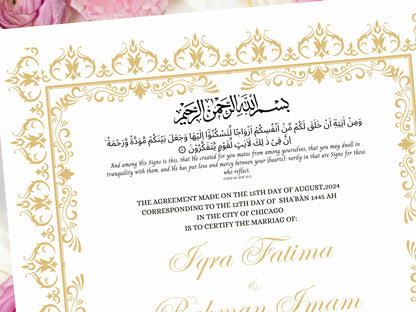 بسم الله الرحمن الرحيم
وَمِنْ آيَتِهِ أَنْ خَلَقَ لَكُم مِّنْ أَنفُسِكُمْ أَزْوَاجًا لِّتَسْكُنُوا إِلَيْهَا وَجَعَلَ بَيْنَكُم مَّوَدَّةً وَرَحْمَةً
إِنَّ فِي ذَٰلِكَ لَآيَاتٍ لِّقَوْمٍ يَتَفَكَّرُونَ
And among His Signs is this, that He created for you mates from among yourselves, that you may dwell in
tranquility with them, and He has put love and mercy between your (hearts): verily in that are Signs for those
who reflect.
THE AGREEMENT MADE ON THE 15TH DAY OF AUGUST,2024
CORRESPONDING TO THE 12TH DAY OF SHA'BĀN 1445 AH
IN THE CITY OF CHICAGO
IS TO CERTIFY THE MARRIAG OF:
Iqra Fatima
&
Rahman Imam